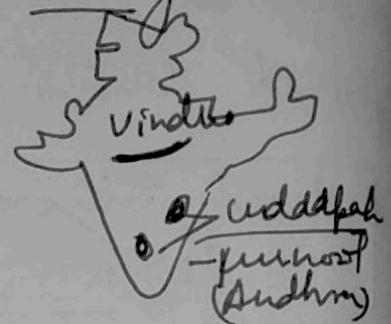 Vindhya
Cuddapah
- Kurnool
(Andhra)